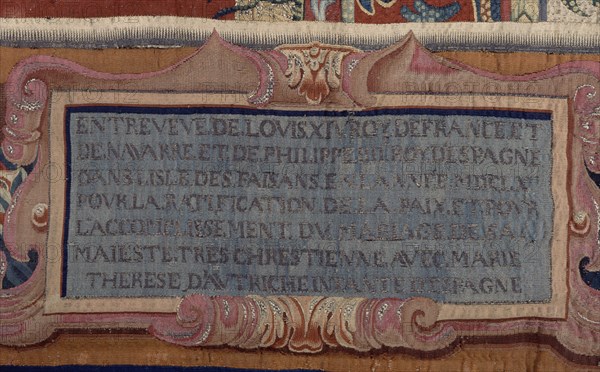 ENTREVEVE.DE.LOVIS XIV.ROY.DEFRANCE ET
DE NAVARRE.ET.DE.PHILIPPE ROY.DESPAGNE
DANS LISLE.DES.FAISANS.
POVR.LA.RATIFICATION.DE.LA.PAIX.ET.POVR
LACCOMPLISSEMENT.DV.MARIAGE.DE.SA
MAIESTE.TRES.CHRESTIENNE.AVEC.MARIE
THERESE.D'AVTRICHE INFANTE DESPAGNE